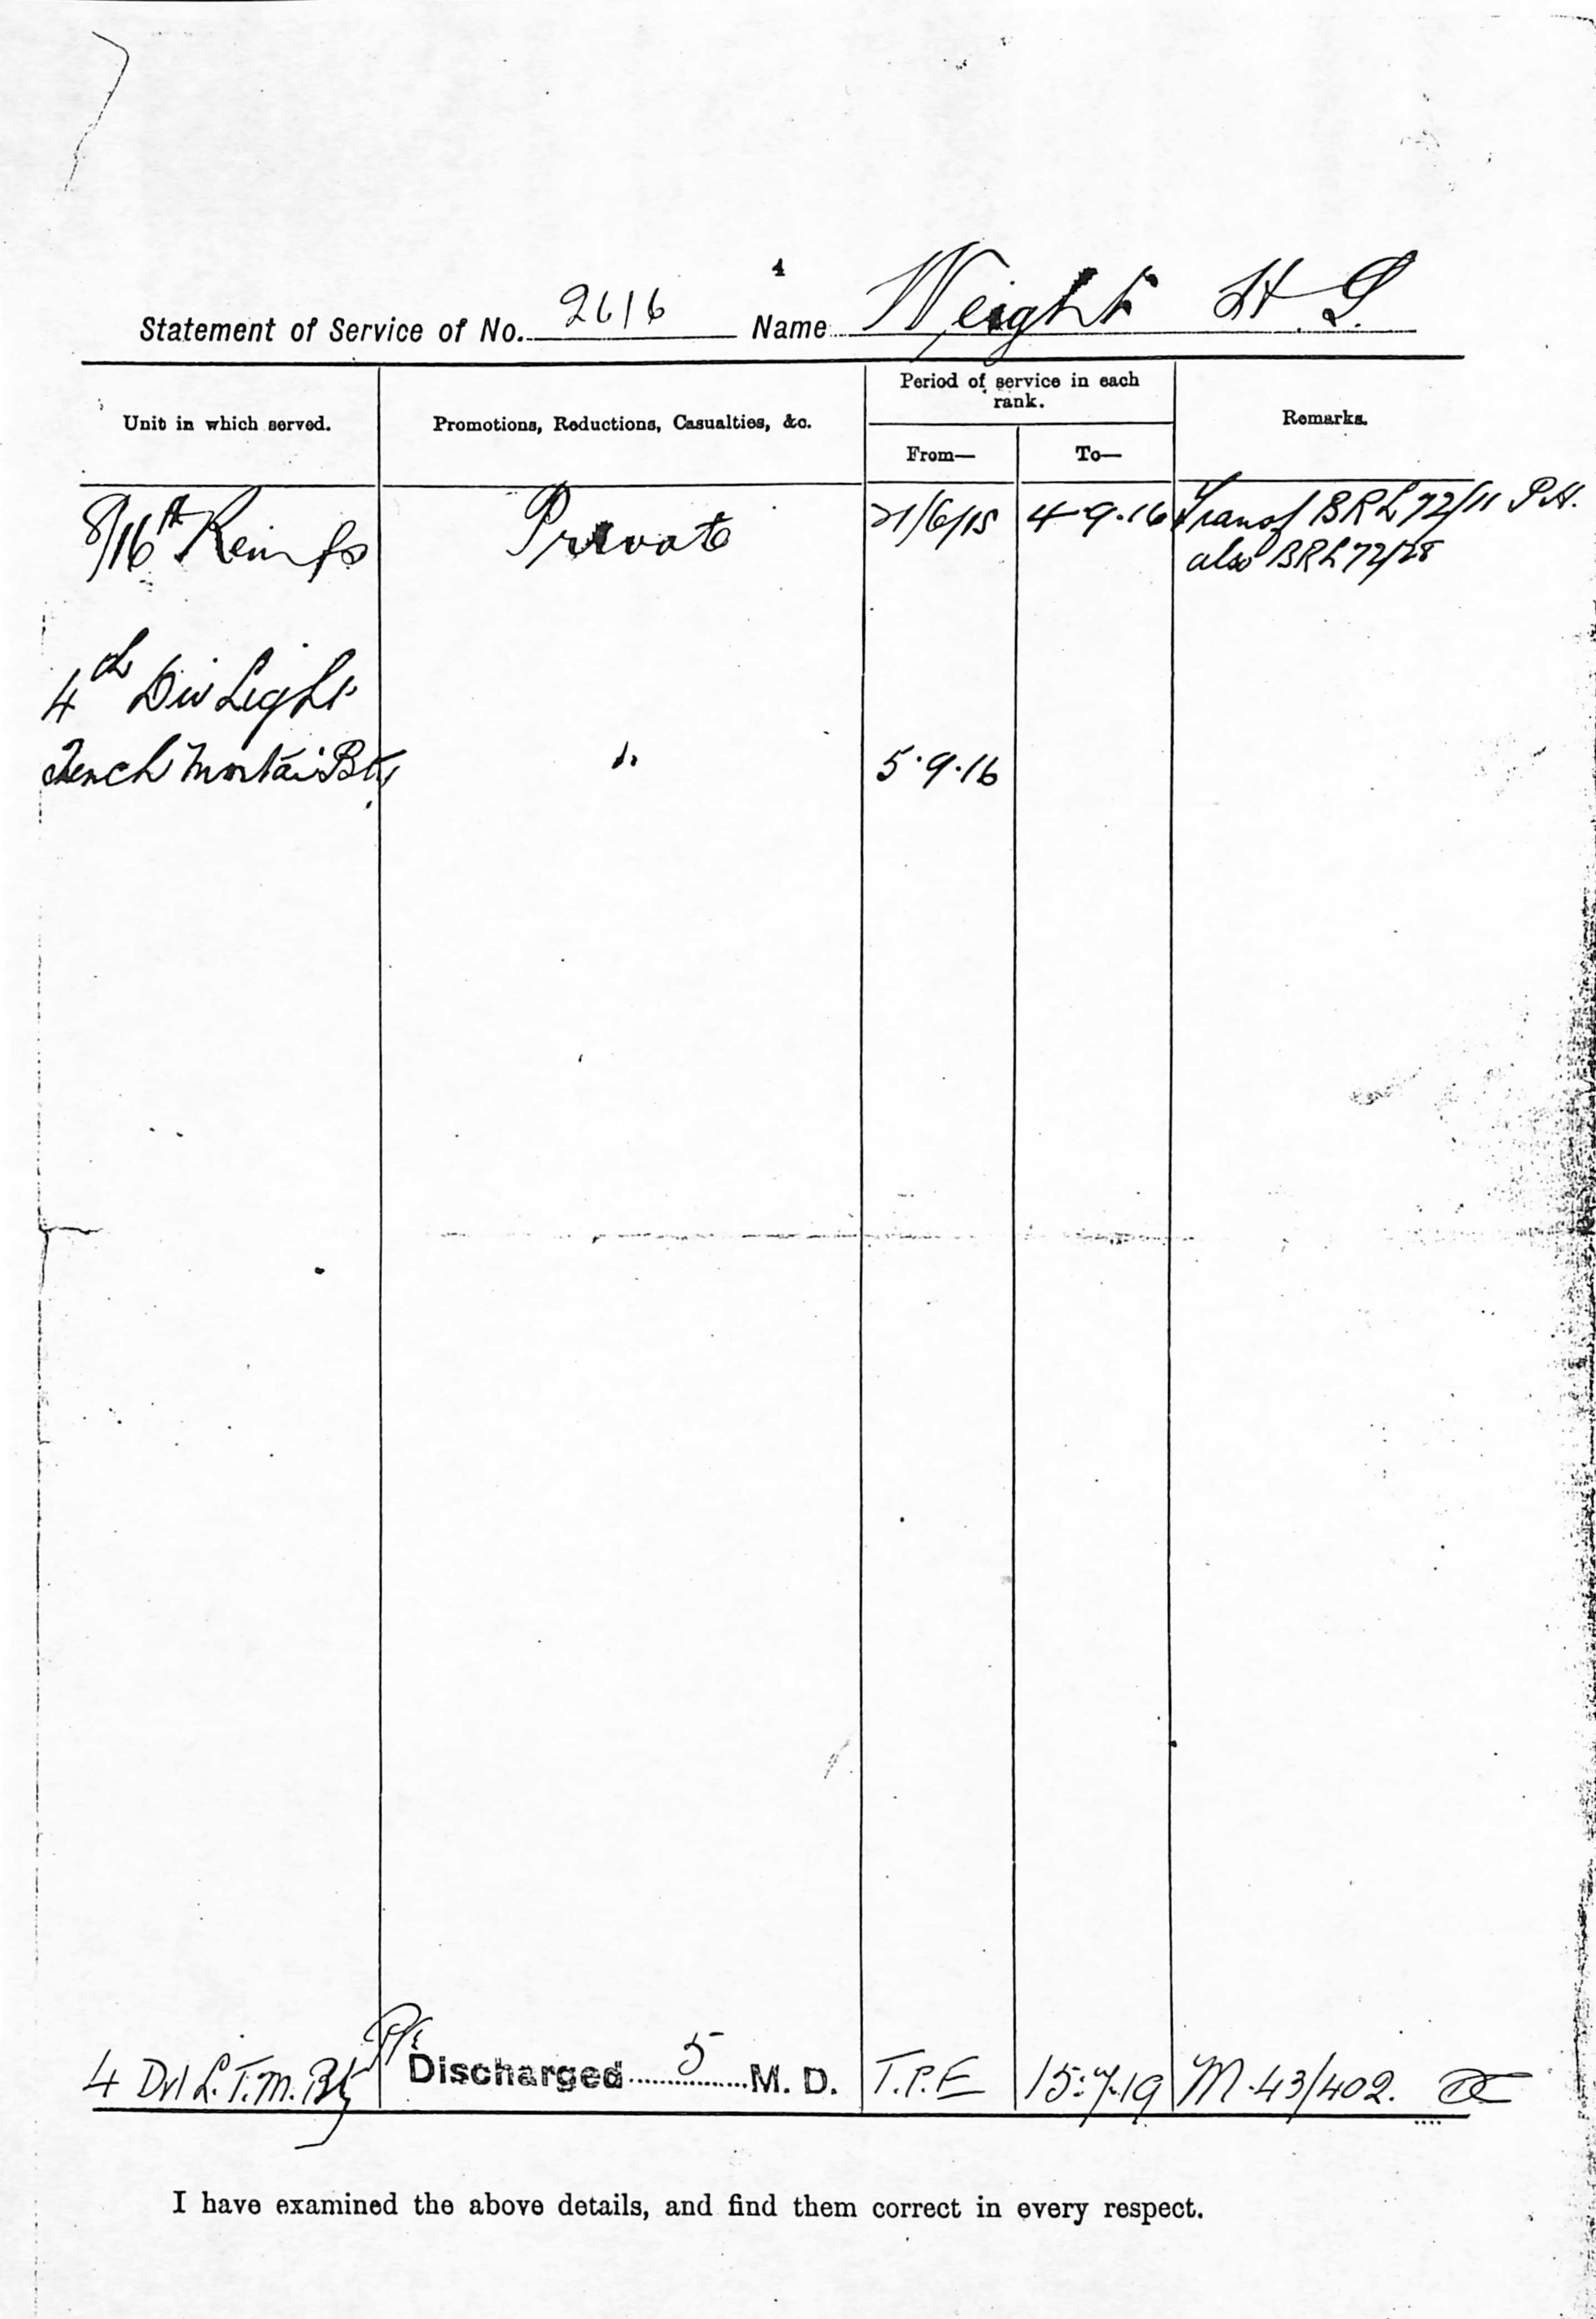 4
Statement of Service of No. 2616 Name Weight H. G.
Unit in which served. Promotions, Reductions, Casualties, &c. Period of service in each rank. From— To— Remarks.
8/16th Reinfs Private 21/6/15 4-9-16 Transf BRL 72/11 P.H.
also BRL 72/28
4th Div Light
Trench Mortar Bty 5.9.16
4 Dvl L.T.M. Bty Discharged 5 M. D. T.P.E 15.7.19 M.43/402.
I have examined the above details, and find them correct in every respect.